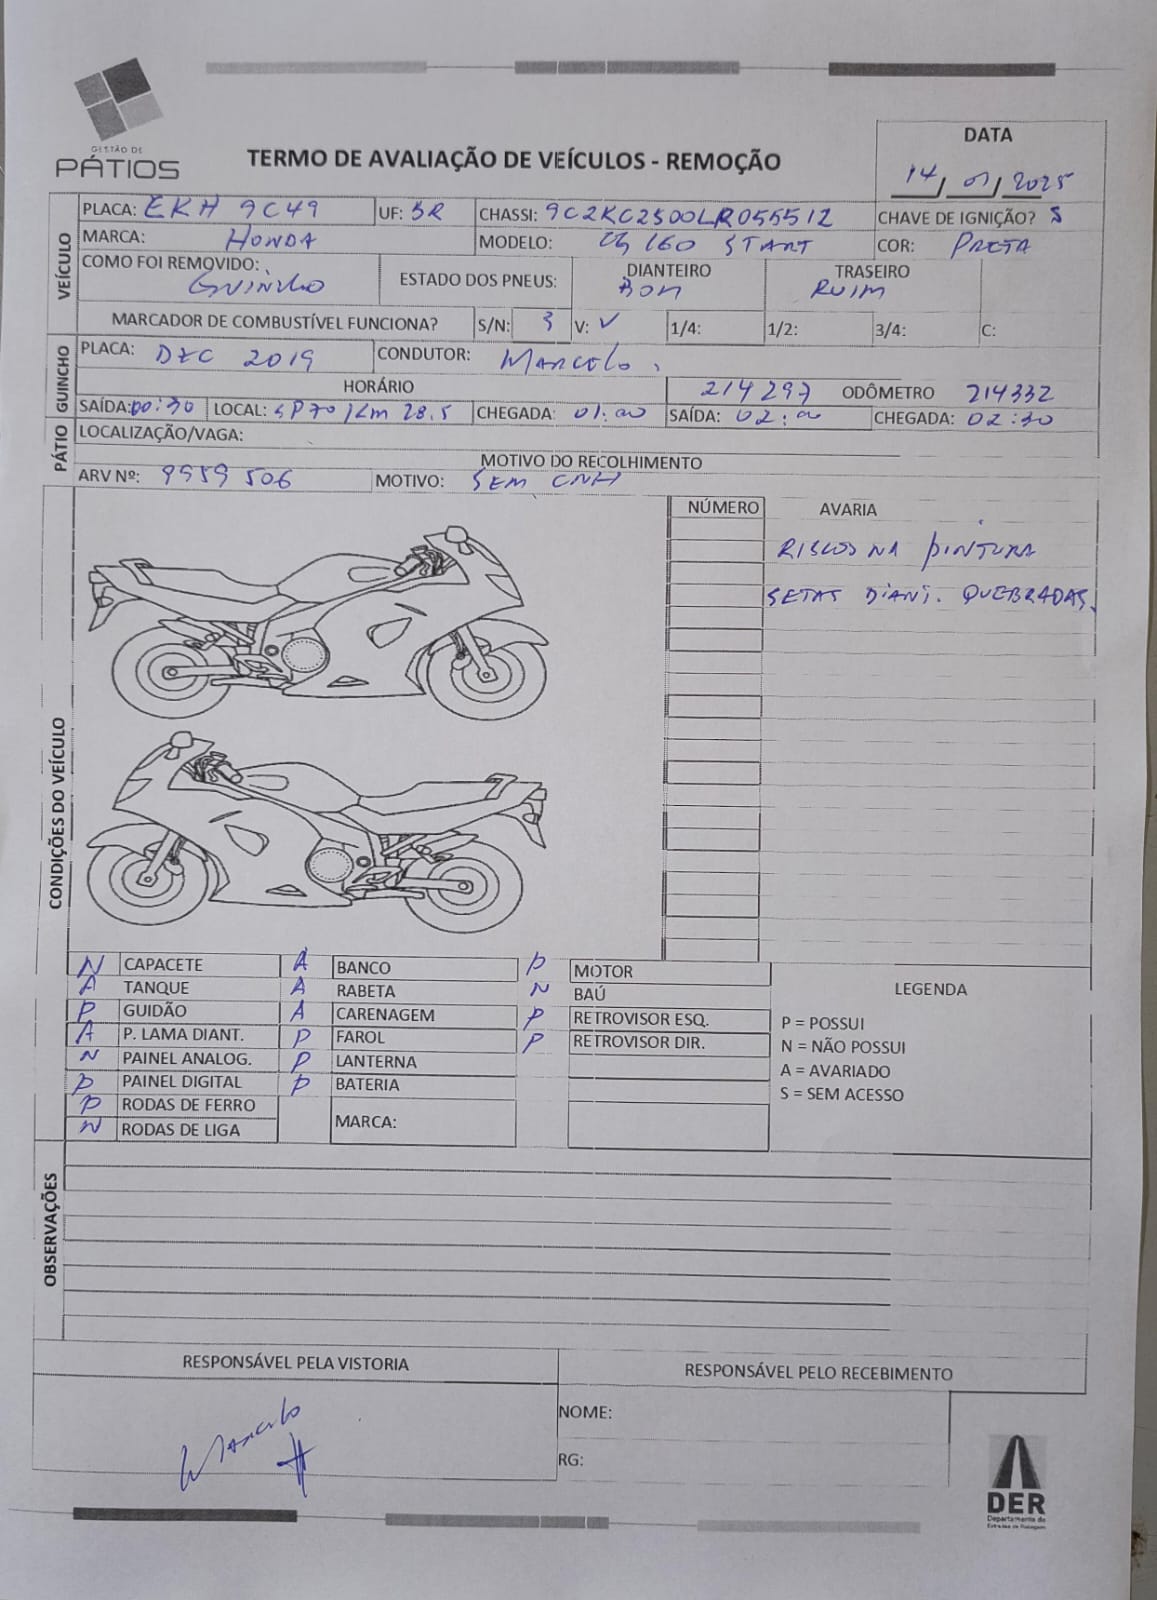 GESTÃO DE
PÁTIOS
TERMO DE AVALIAÇÃO DE VEÍCULOS - REMOÇÃO
DATA
14/01/2025
VEÍCULO
PLACA: EKH 9C49 UF: BR CHASSI: 9C2KC2500LR055512 CHAVE DE IGNIÇÃO? S
MARCA: HONDA MODELO: CG 160 START COR: PRETA
COMO FOI REMOVIDO: GUINCHO ESTADO DOS PNEUS: DIANTEIRO BOM TRASEIRO RUIM
MARCADOR DE COMBUSTÍVEL FUNCIONA? S/N: S V: ✓ 1/4: 1/2: 3/4: C:
GUINCHO
PLACA: DZC 2019 CONDUTOR: MARCELO.
HORÁRIO 214297 ODÔMETRO 214332
SAÍDA: 00:30 LOCAL: SP70 /Km 28.5 CHEGADA: 01:00 SAÍDA: 02:00 CHEGADA: 02:30
PÁTIO
LOCALIZAÇÃO/VAGA:
MOTIVO DO RECOLHIMENTO
ARV Nº: 9959506 MOTIVO: SEM CNH
CONDIÇÕES DO VEÍCULO
NÚMERO AVARIA
RISCOS NA PINTURA
SETAS DIANT. QUEBRADAS.
N CAPACETE A BANCO P MOTOR
A TANQUE A RABETA N BAÚ
P GUIDÃO A CARENAGEM P RETROVISOR ESQ.
A P. LAMA DIANT. P FAROL P RETROVISOR DIR.
N PAINEL ANALOG. P LANTERNA
P PAINEL DIGITAL P BATERIA
P RODAS DE FERRO MARCA:
N RODAS DE LIGA
LEGENDA
P = POSSUI
N = NÃO POSSUI
A = AVARIADO
S = SEM ACESSO
OBSERVAÇÕES
RESPONSÁVEL PELA VISTORIA
Marcelo
RESPONSÁVEL PELO RECEBIMENTO
NOME:
RG:
DER
Departamento de
Estradas de Rodagem